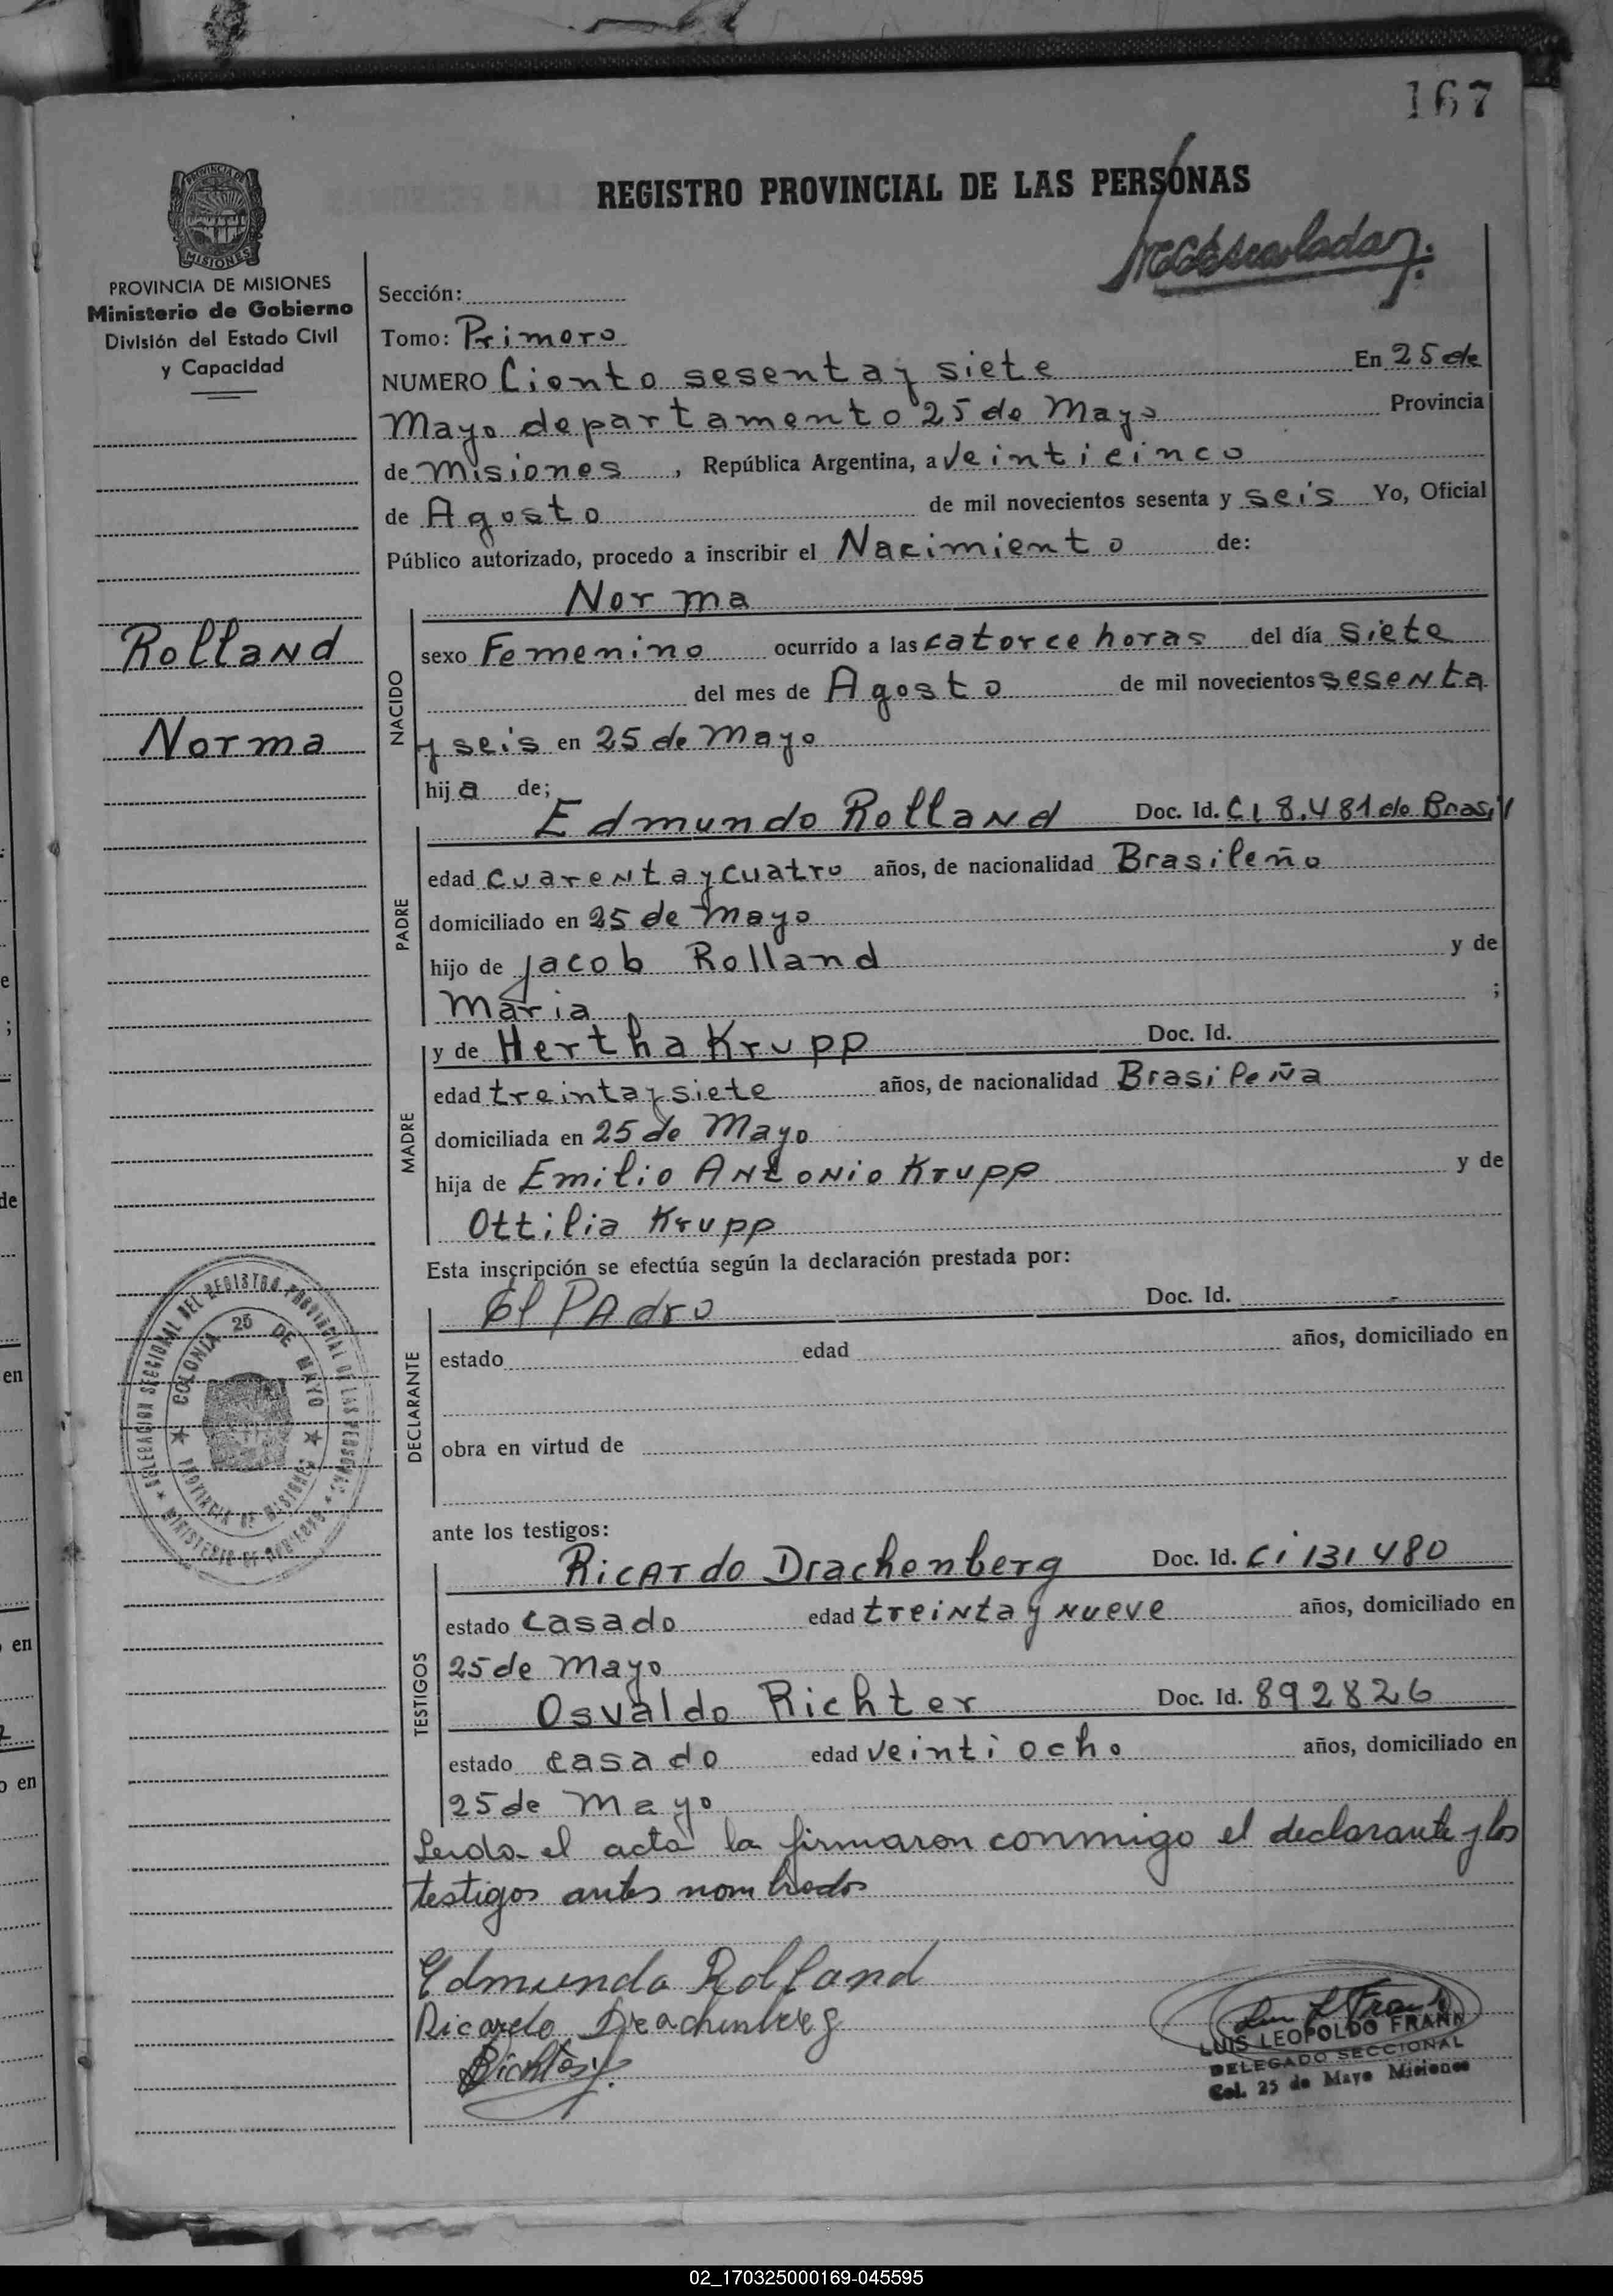 167
REGISTRO PROVINCIAL DE LAS PERSONAS
PROVINCIA DE MISIONES
Ministerio de Gobierno
División del Estado Civil
y Capacidad
Sección:
Tomo: Primero
NUMERO Ciento sesenta y siete En 25 de
Mayo departamento 25 de Mayo Provincia
de Misiones, República Argentina, a veinticinco
de Agosto de mil novecientos sesenta y seis Yo, Oficial
Público autorizado, procedo a inscribir el Nacimiento de:
Rolland
Norma
NACIDO
Norma
sexo Femenino ocurrido a las catorce horas del día siete
del mes de Agosto de mil novecientos sesenta
y seis en 25 de Mayo
hija de;
PADRE
Edmundo Rolland Doc. Id. CI 8.481 de Brasil
edad cuarenta y cuatro años, de nacionalidad Brasileño
domiciliado en 25 de Mayo
hijo de Jacob Rolland y de
Maria ;
MADRE
y de Hertha Krupp Doc. Id.
edad treinta y siete años, de nacionalidad Brasileña
domiciliada en 25 de Mayo
hija de Emilio Antonio Krupp y de
Ottilia Krupp
Esta inscripción se efectúa según la declaración prestada por:
DECLARANTE
El Padre Doc. Id. -
estado edad años, domiciliado en
obra en virtud de
DELEGACION SECCIONAL DEL REGISTRO PROVINCIAL DE LAS PERSONAS
MINISTERIO DE GOBIERNO
COLONIA 25 DE MAYO
PROVINCIA DE MISIONES
ante los testigos:
TESTIGOS
Ricardo Drachenberg Doc. Id. Ci 131480
estado casado edad treinta y nueve años, domiciliado en
25 de Mayo
Osvaldo Richter Doc. Id. 892826
estado casado edad veintiocho años, domiciliado en
25 de Mayo
Leida el acta la firmaron conmigo el declarante y los
testigos antes nombrados
Edmundo Rolland
Ricardo Drachenberg
Richter
LUIS LEOPOLDO FRANK
DELEGADO SECCIONAL
Col. 25 de Mayo Misiones
02_170325000169-045595